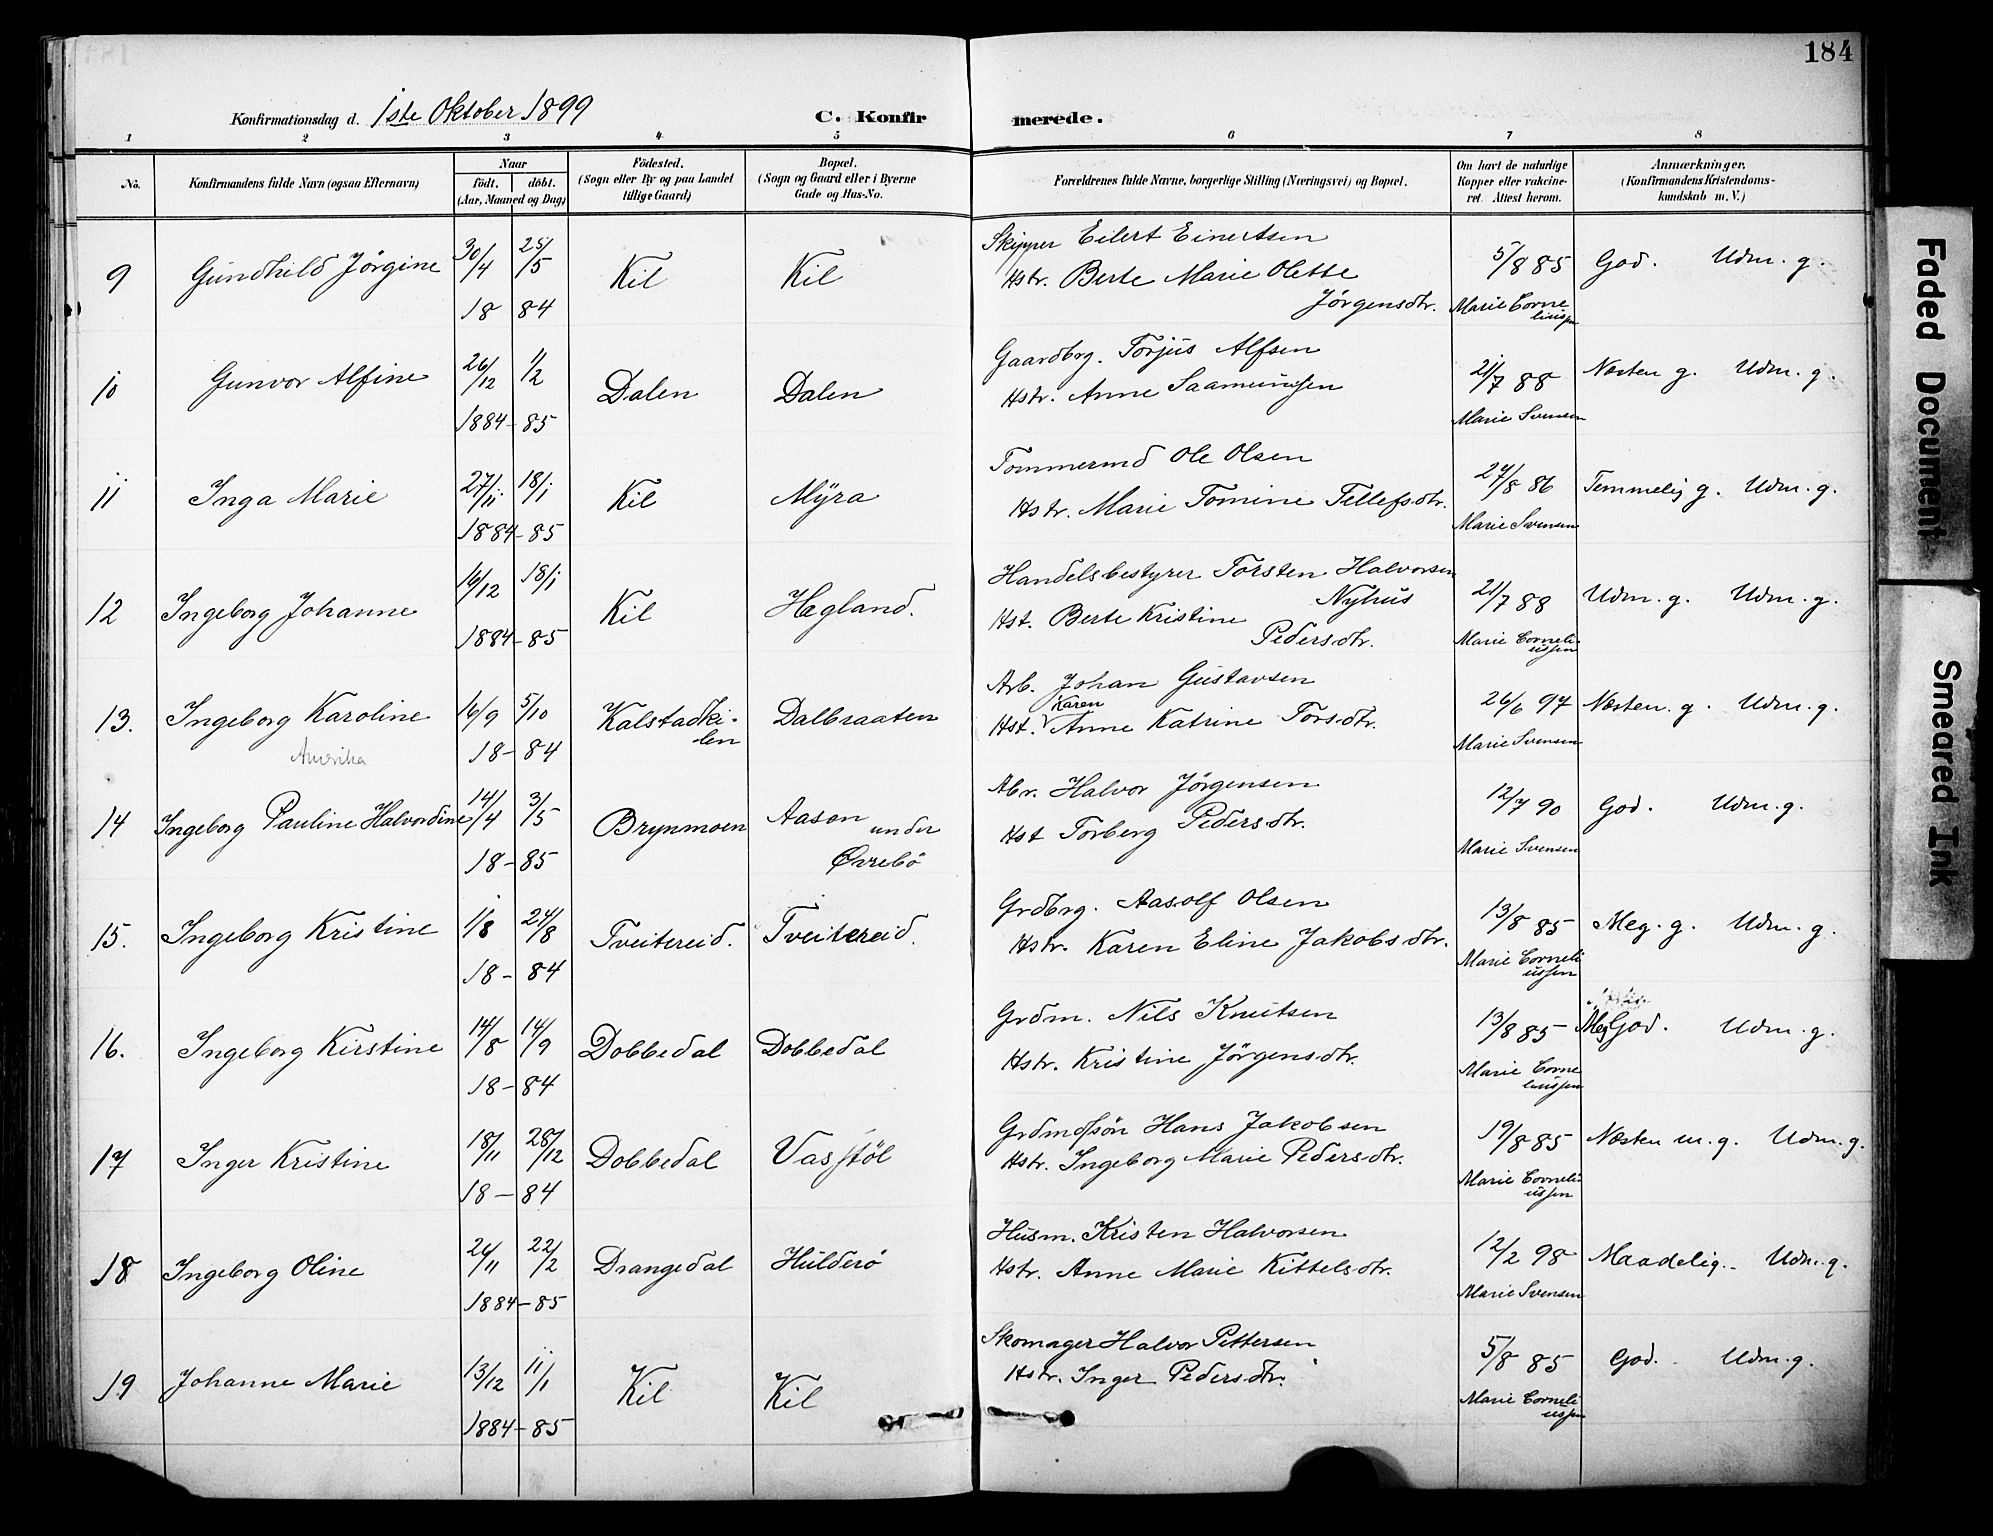 184
Konfirmationsdag d. 1ste Oktober 1899
C. Konfirmerede.
1 2 3 4 5 6 7 8
No.
Konfirmandens fulde Navn (ogsaa Efternavn)
Naar
födt. döbt.
(Aar, Maaned og Dag)
Födested.
(Sogn eller By og paa Landet
tillige Gaard)
Bopæl.
(Sogn og Gaard eller i Byerne
Gade og Hus-No.
Forældrenes fulde Navne, borgerlige Stilling (Næringsvei) og Bopæl.
Om havt de naturlige
Kopper eller vakcine-
ret. Attest herom.
Anmærkninger.
(Konfirmandens Kristendoms-
kundskab m. V.)
9 Gundhild Jörgine 30/4 25/5 Kil Kil Skipper Eilert Einertsen 5/8 85 God. Udm. g.
18 84 Hstr. Berte Marie Olette
Jörgensdtr. Marie Corne
liussen
10 Gunvor Alfine 26/12 1/2 Dalen Dalen Gaardbrg. Torjus Alfsen 21/7 88 Næsten g. Udm. g.
1884-85 Hstr. Anne Saamundsen Marie Svensen
11 Inga Marie 27/11 18/1 Kil Myra Tømmermd Ole Olsen 27/8 86 Temmelig g. Udm. g.
1884-85 Hstr. Marie Tomine Tellefsdtr. Marie Svensen
12 Ingeborg Johanne 16/12 18/1 Kil Hegland. Handelsbestyrer Torsten Halvorsen
Nyhus 21/7 88 Udm. g. Udm. g.
1884-85 Hst. Berte Kristine
Pedersdtr. Marie Corneli-
ussen
13. Ingeborg Karoline 16/9 5/10 Kalstadki-
len Dalbraaten Arb. Johan Gustavsen 26/6 97 Næsten. g. Udm. g.
Amerika 18-84 Hst. Karen Anne Katrine Torsdtr. Marie Svensen
14 Ingeborg Pauline Halvordine 14/4 3/5 Brynmoen Aasen under
Øvrebö Abr. Halvor Jörgensen 12/7 90 God. Udm. g.
18-85 Hst Torberg Pedersdtr. Marie Svensen
15. Ingeborg Kristine 1/8 24/8 Tveitereid. Tveitereid. Grdbrg. Aasolf Olsen 13/8 85 Meg. g. Udm. g.
18-84 Hstr. Karen Eline Jakobsdtr. Marie Corneli
ussen
16. Ingeborg Kirstine 14/8 14/9 Dobbedal Dobbedal Grdm. Nils Knutsen 13/8 85 Meg God. Udm. g.
18-84 Hstr. Kristine Jörgensdtr. Marie Corne
liussen
17 Inger Kristine 18/11 28/12 Dobbedal Vasstöl Grdmdssön Hans Jakobsen 19/8 85 Næsten m. g. Udm. g.
18-84 Hstr. Ingeborg Marie Pedersdtr. Marie Corneli
ussen
18 Ingeborg Oline 26/11 22/2 Drangedal Hulderö Husm. Kristen Halvorsen 12/2 98 Maadelig. Udm. g.
1884-85 Hstr. Anne Marie Kittelsdtr. Marie Svensen
19 Johanne Marie 13/12 11/1 Kil Kil Skomager Halvor Pettersen 5/8 85 God. Udm. g.
1884-85 Hstr. Inger Pedersdtr. Marie Corneli
ussen
Faded Document
Smeared Ink